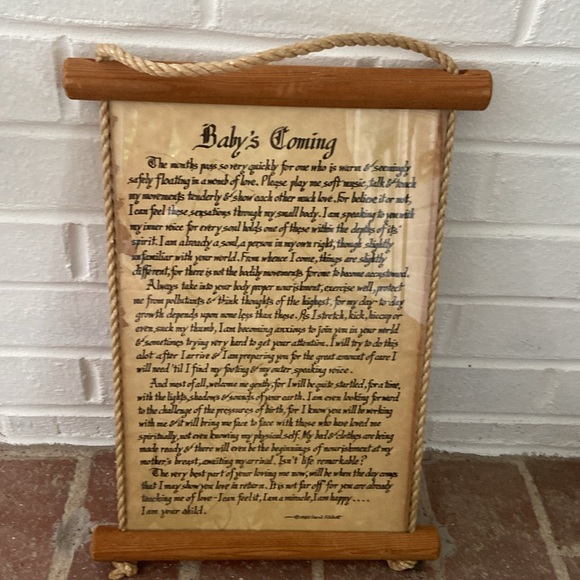 Baby's Coming
The months pass so very quickly for one who is warm & seemingly
safely floating in a womb of love. Please play me soft music, talk & touch
my movements tenderly & show each other much love, for believe it or not,
I can feel these sensations through my small body. I am speaking to you with
my inner voice for every soul holds one of these within the depths of its'
spirit. I am already a soul, a person in my own right, though slightly
unfamiliar with your world. From whence I come, things are slightly
different, for there is not the bodily movements for one to become accustomed.
Always take into your body proper nourishment, exercise well, protect
me from pollutants & think thoughts of the highest, for my day-to-day
growth depends upon none less than these. As I stretch, kick, hiccup or
even suck my thumb, I am becoming anxious to join you in your world
& sometimes trying very hard to get your attention. I will try to do this
alot after I arrive & I am preparing you for the great amount of care I
will need 'til I find my footing & my outer speaking voice.
And most of all, welcome me gently, for I will be quite startled, for a time,
with the lights, shadows & sounds of your earth. I am even looking forward
to the challenge of the pressures of birth, for I know you will be working
with me & it will bring me face to face with those who have loved me
spiritually, not even knowing my physical self. My bed & clothes are being
made ready & there will even be the beginnings of nourishment at my
mother's breast, awaiting my arrival. Isn't life remarkable?
The very best part of your loving me now, will be when the day comes
that I may show you love in return. It is not far off for you are already
teaching me of love - I can feel it, I am a miracle, I am happy....
I am your child.